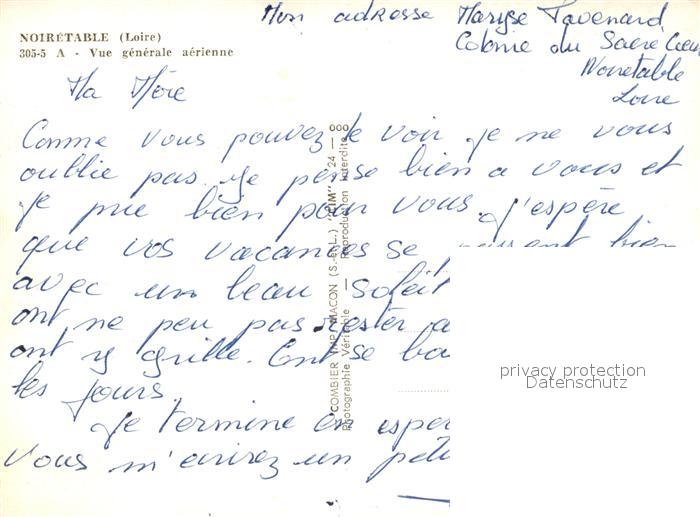 Mon adresse Maryse Tavenard
Colonie du Sacré Cœur
Noiretable
Loire
NOIRÉTABLE (Loire)
305-5 A - Vue générale aérienne
Ma Mère
Comme vous pouvez le voir je ne vous
oublie pas. Je pense bien a vous et
je prie bien pour vous. j'espère
que vos vacances se passent bien
avec un beau soleil
ont ne peu pas rester a
ont y grille. Ont se ba
les jours.
Je termine en esper
vous m'ecrirez un petit
"COMBIER" IMP. MACON (S.-&-L.) "CIM"
Photographie Véritable — Reproduction Interdite
24 — 000
privacy protection
Datenschutz